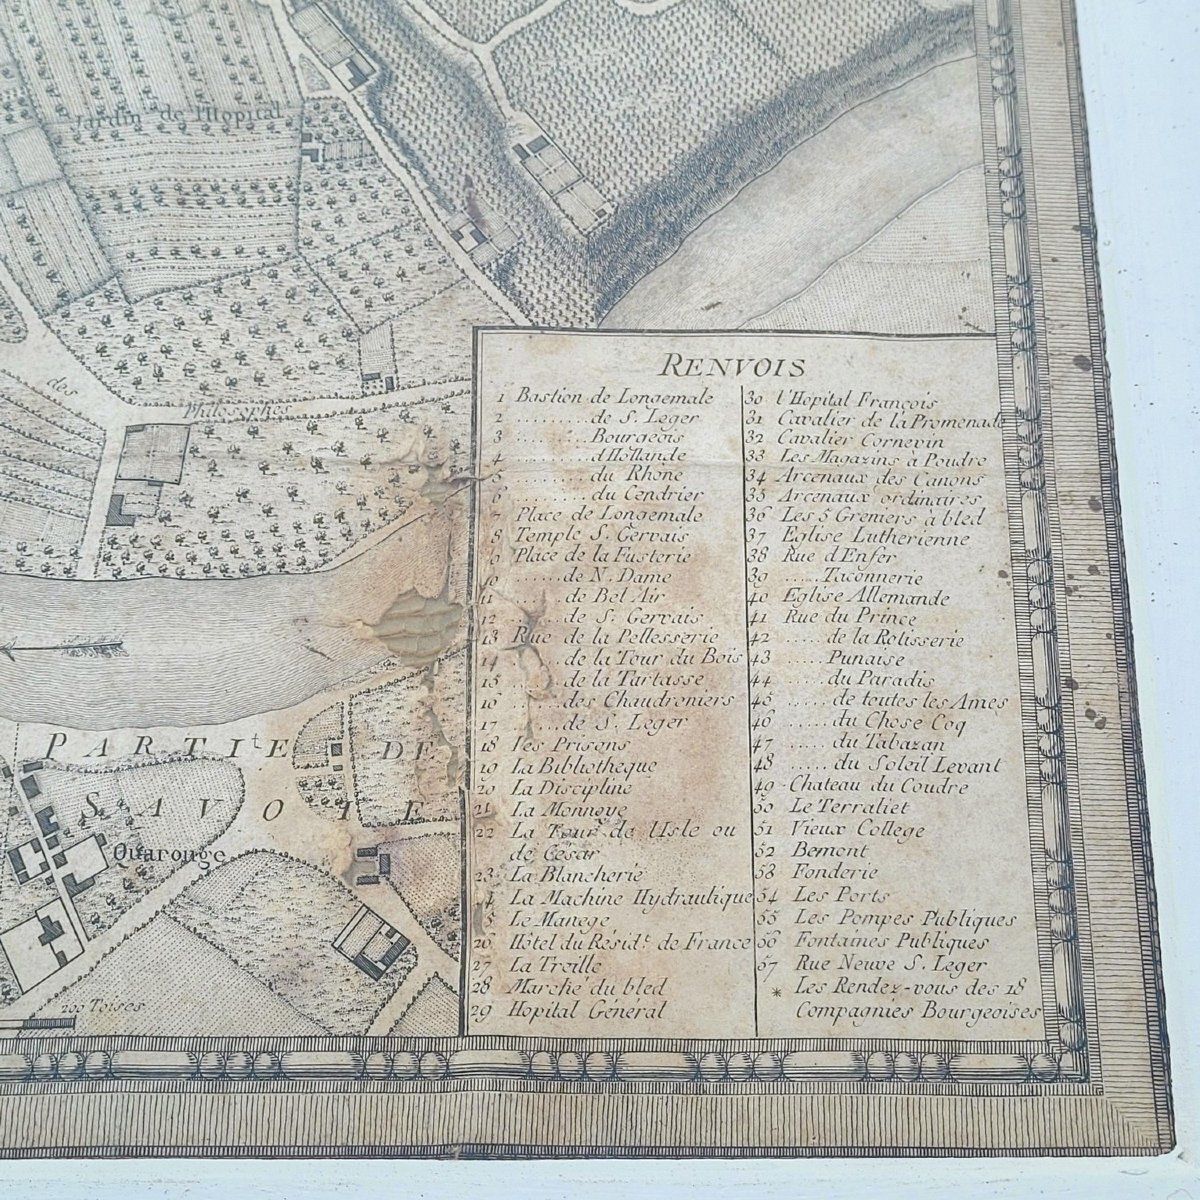 Jardin de l'Hopital
des
Philosophes
PARTIE DE
SAVOIE
Quarouge
200 Toises
RENVOIS
1 Bastion de Longemale
2 .........de S. Leger
3 .........Bourgeois
4 .........d'Hollande
5 .........du Rhône
6 .........du Cendrier
7 Place de Longemale
8 Temple S. Gervais
9 Place de la Fusterie
10 ......de N. Dame
11 ......de Bel Air
12 ......de S. Gervais
13 Rue de la Pellesserie
14 ......de la Tour du Bois
15 ......de la Tartasse
16 ......des Chaudroniers
17 ......de S. Leger
18 les Prisons
19 La Bibliotheque
20 La Discipline
21 La Monnoye
22 La Tour de l'Isle ou
de César
23 La Blancherie
24 La Machine Hydraulique
25 Le Manege
26 Hôtel du Résid.t de France
27 La Treille
28 Marché du bled
29 Hopital Général
30 l'Hopital François
31 Cavalier de la Promenade
32 Cavalier Cornevin
33 Les Magazins à Poudre
34 Arcenaux des Canons
35 Arcenaux ordinaires
36 Les 5 Greniers à bled
37 Eglise Lutherienne
38 Rue d'Enfer
39 .....Taconnerie
40 Eglise Allemande
41 Rue du Prince
42 .....de la Rotisserie
43 .....Punaise
44 .....du Paradis
45 .....de toutes les Ames
46 .....du Chose Coq
47 .....du Tabazan
48 .....du Soleil Levant
49 Chateau du Coudre
50 Le Terrallet
51 Vieux College
52 Bemont
53 Fonderie
54 Les Ports
55 Les Pompes Publiques
56 Fontaines Publiques
57 Rue Neuve S. Leger
* Les Rendez-vous des 18
Compagnies Bourgeoises